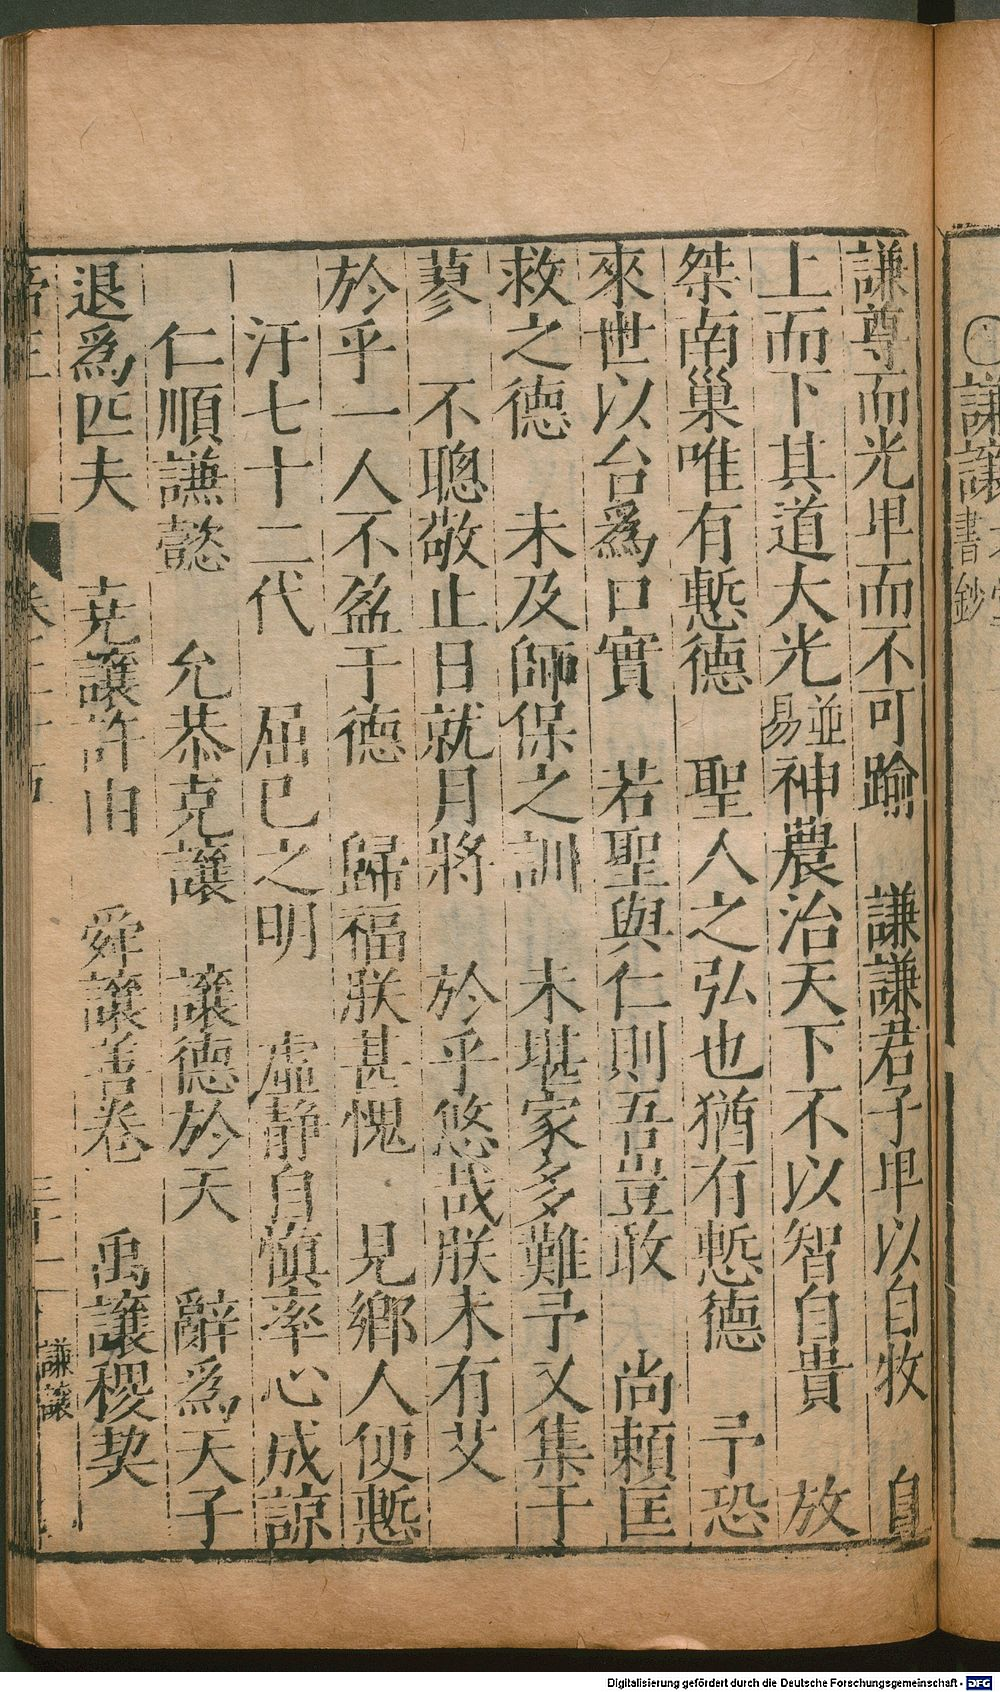 謙讓
書鈔
謙尊而光卑而不可踰　謙謙君子卑以自牧　自
上而下其道大光並易神農治天下不以智自貴　放
桀南巢唯有慙德　聖人之弘也猶有慙德　予恐
來世以台爲口實　若聖與仁則吾豈敢　尚賴匡
救之德　未及師保之訓　未堪家多難予又集于
蓼　不聰敬止日就月將　於乎悠哉朕未有艾
於乎一人不盈于德　歸福朕甚愧　見鄉人便慙
汗七十二代　屈已之明　虛靜自愼率心成諒
仁順謙懿　允恭克讓　讓德於天　辭爲天子
退爲匹夫　尭讓許由　舜讓善卷　禹讓稷契
謙讓
Digitalisierung gefördert durch die Deutsche Forschungsgemeinschaft - DFG